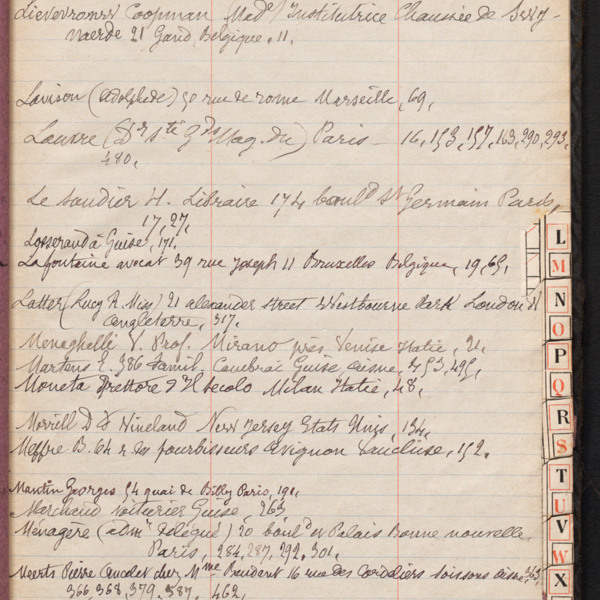 Lievevrouw Coopman (Made) Institutrice Chaussée de
naerde 21 Gand Belgique, 11.
Lavison (Adolphe de) 50 rue de rome Marseille, 69,
Louvre (Dr Sté Gds Mag. du) Paris — 16, 153, 157, 163, 290, 293,
480.
Le Soudier H. Libraire 174 boulD St Germain Paris,
17, 27,
Losserand à Guise, 171,
Lafontaine avocat 39 rue Joseph II Bruxelles Belgique, 19, 65,
Latter (Lucy R. Miss) 21 alexander street Westbourne Park London W
Angleterre, 317.
Meneghelli V. Prof. Mirano près Venise Italie, 21.
Martens E. 386 famil. Cambrai Guise Aisne, 453, 495,
Moneta Direttore d'Il Secolo Milan Italie, 48,
Morrill D. F. Vineland New Jersey Etats Unis, 134,
Meffre B. 64 r. des fourbisseurs Avignon Vaucluse, 152.
Mantin Georges 54 quai de Billy Paris, 191,
Marchand voiturier Guise, 263
Ménagère (admr délégué) 20 boulD et Palais Bonne nouvelle,
Paris, 284, 287, 292, 301,
Meerts Pierre chez Mme 16 rue des Cordeliers Soissons Aisne, 363,
366, 368, 379, 387, 462,
L
M
N
O
P
Q
R
S
T
U
V
W
X